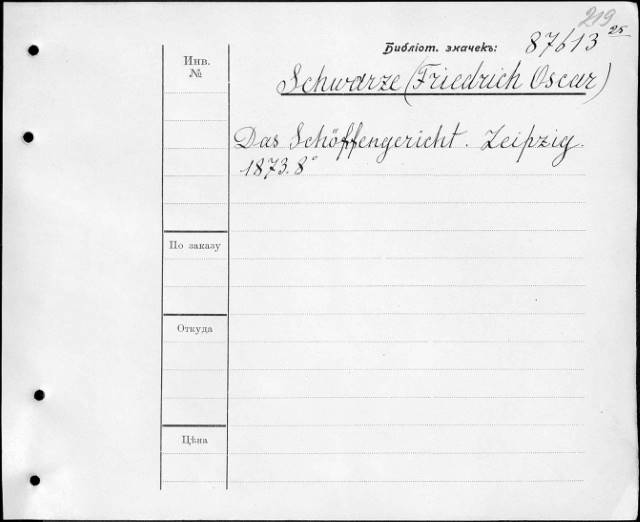 219
Библіот. значекъ: 87613 25
Инв.
№
Schwarze (Friedrich Oscar)
Das Schöffengericht. Leipzig.
1873. 8°
По заказу
Откуда
Цѣна